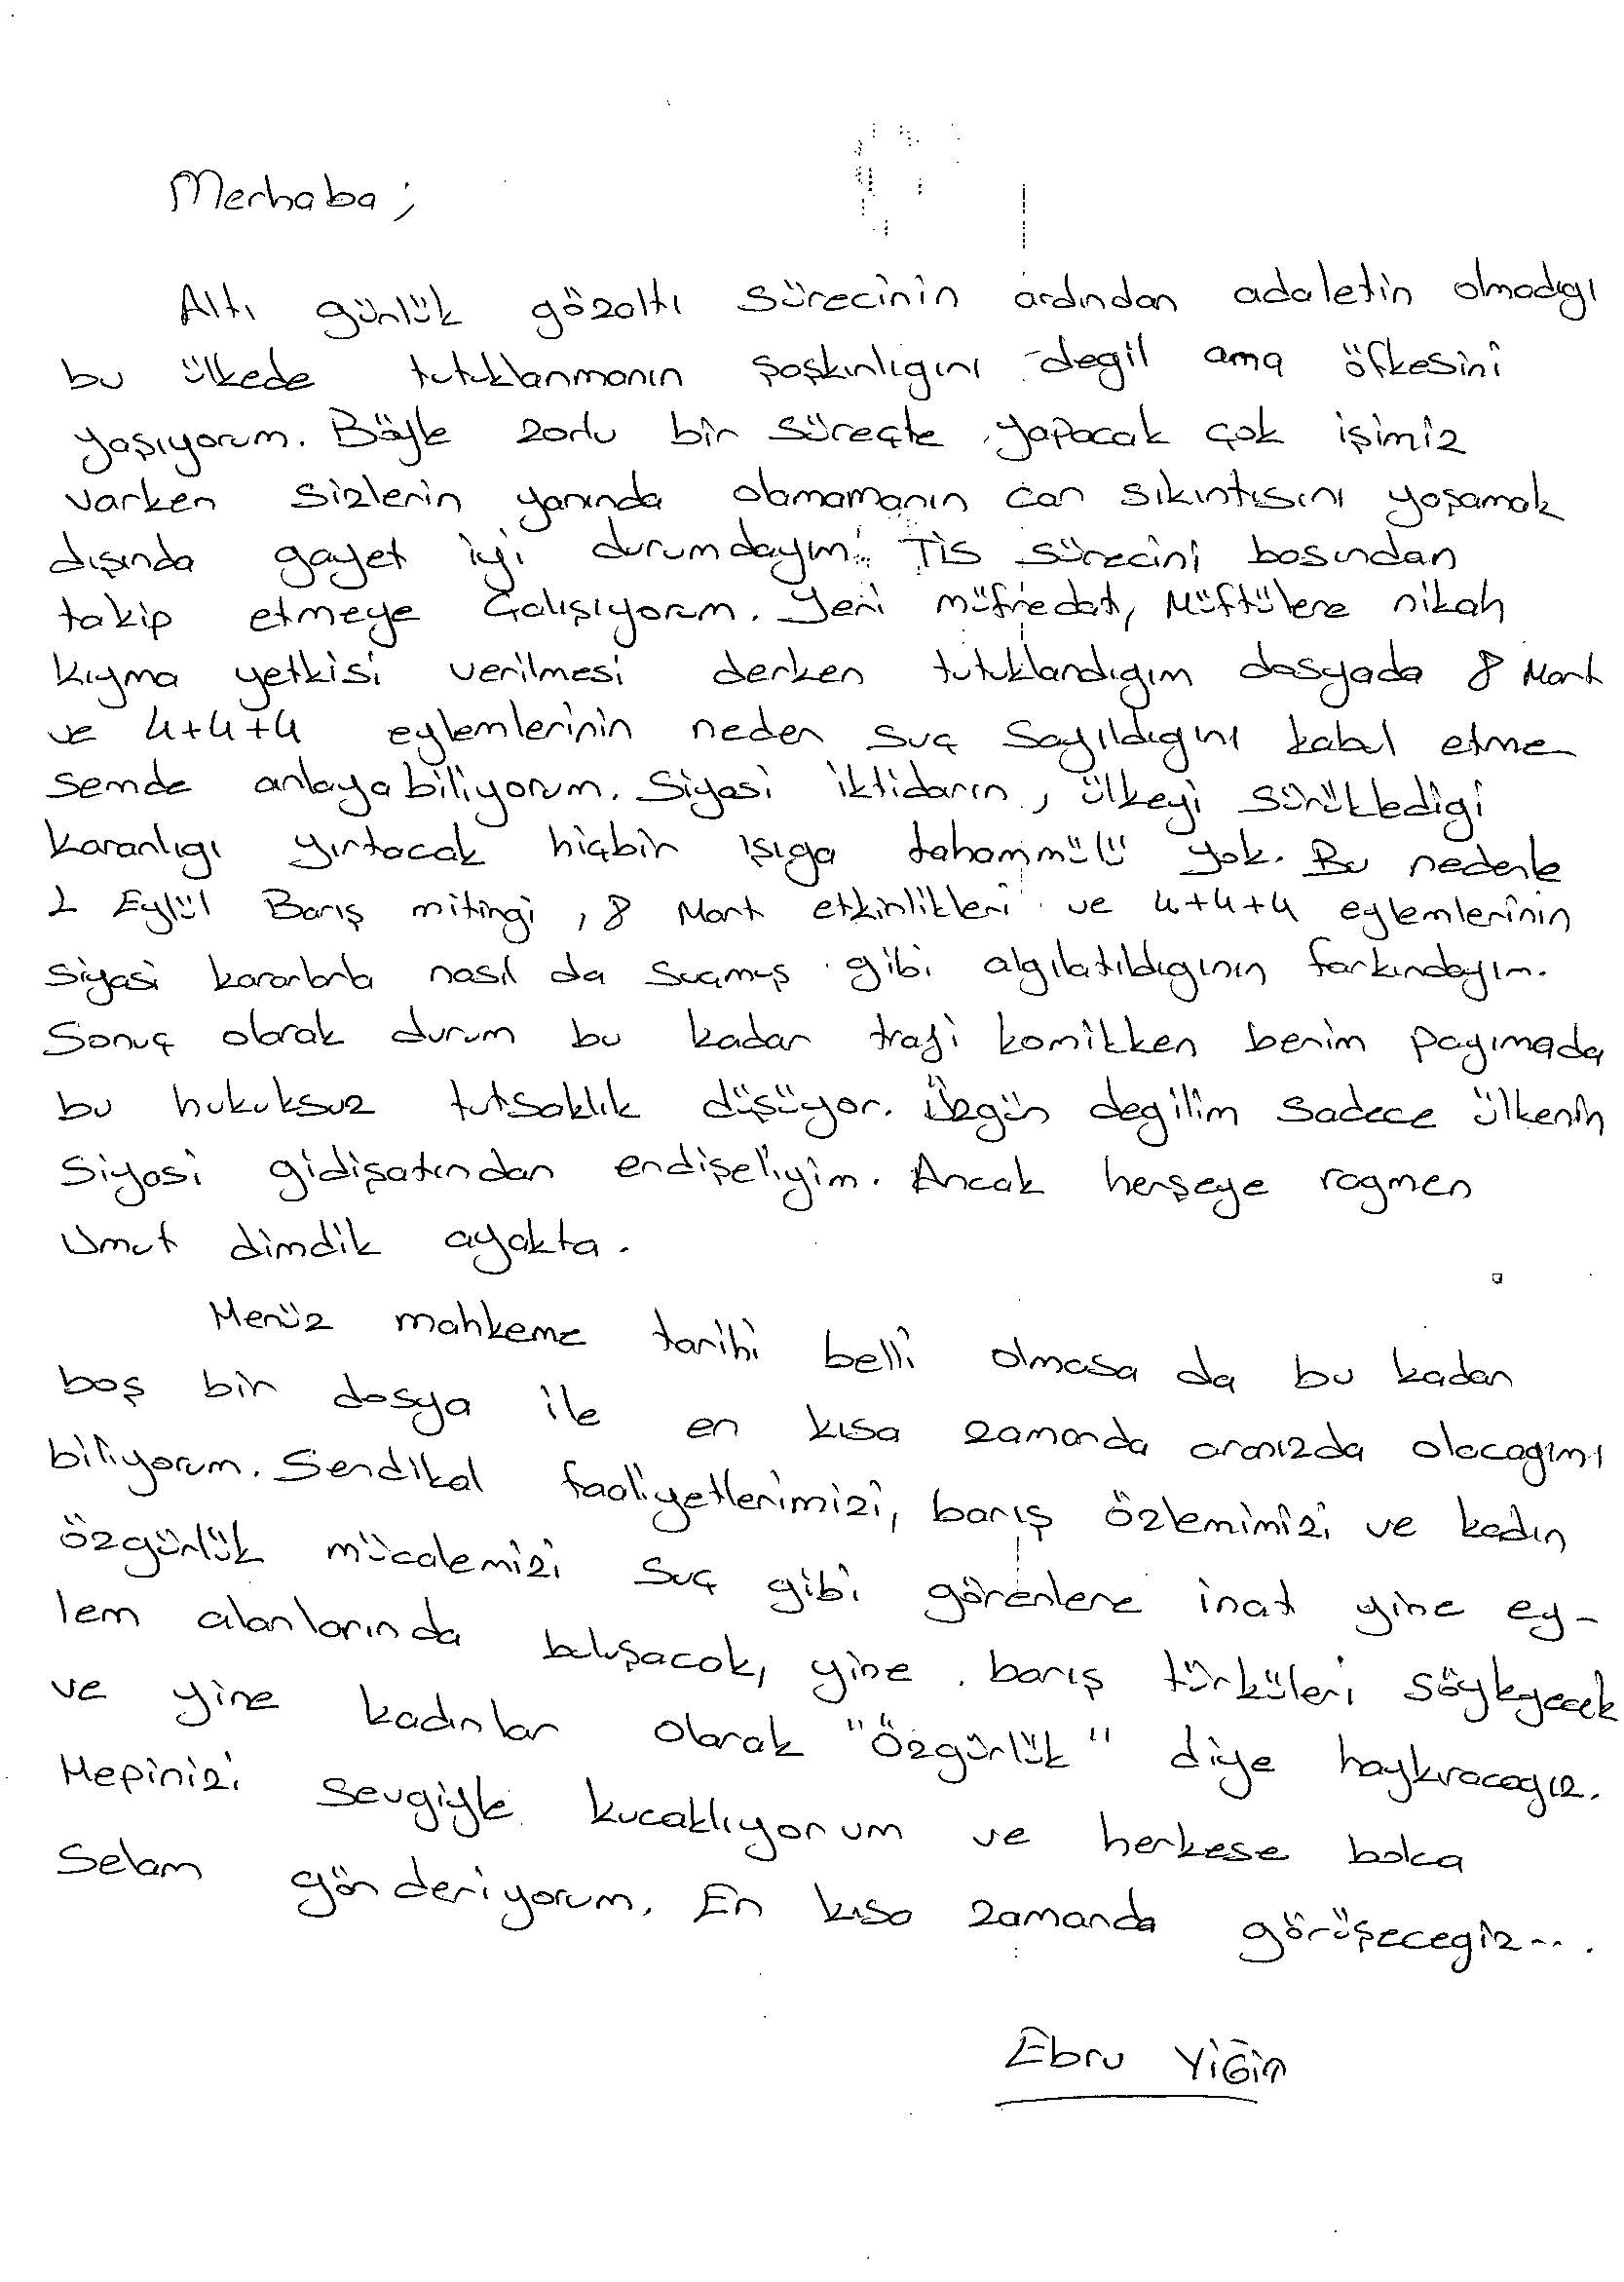 Merhaba;
Altı günlük gözaltı sürecinin ardından adaletin olmadıgı
bu ülkede tutuklanmanın şaşkınlıgını degil ama öfkesini
yaşıyorum. Böyle zorlu bir süreçte yapacak çok işimiz
varken sizlerin yanında olamamanın can sıkıntısını yaşamak
dışında gayet iyi durumdayım. TİS sürecini basından
takip etmeye çalışıyorum. Yeni müfredat, Müftülere nikah
kıyma yetkisi verilmesi derken tutuklandıgım dosyada 8 Mart
ve 4+4+4 eylemlerinin neden suç sayıldıgını kabul etme
semde anlayabiliyorum. Siyasi iktidarın, ülkeyi sürükledigi
karanlıgı yırtacak hiçbir ışıga tahammülü yok. Bu nedenle
1 Eylül Barış mitingi, 8 Mart etkinlikleri ve 4+4+4 eylemlerinin
siyasi kararlarla nasıl da suçmuş gibi algılatıldıgının farkındayım.
Sonuç olarak durum bu kadar traji komikken benim payımada
bu hukuksuz tutsaklık düşüyor. Üzgün degilim sadece ülkenin
siyasi gidişatından endişeliyim. Ancak herşeye ragmen
umut dimdik ayakta.
Henüz mahkeme tarihi belli olmasa da bu kadar
boş bir dosya ile en kısa zamanda aranızda olacagımı
biliyorum. Sendikal faaliyetlerimizi, barış özlemimizi ve kadın
özgürlük mücalemizi suç gibi görenlere inat yine ey-
lem alanlarında buluşacak, yine barış türküleri söyleyecek
ve yine kadınlar olarak "Özgürlük" diye haykıracagız.
Hepinizi sevgiyle kucaklıyorum ve herkese bolca
selam gönderiyorum. En kısa zamanda görüşecegiz....
Ebru YİĞİN